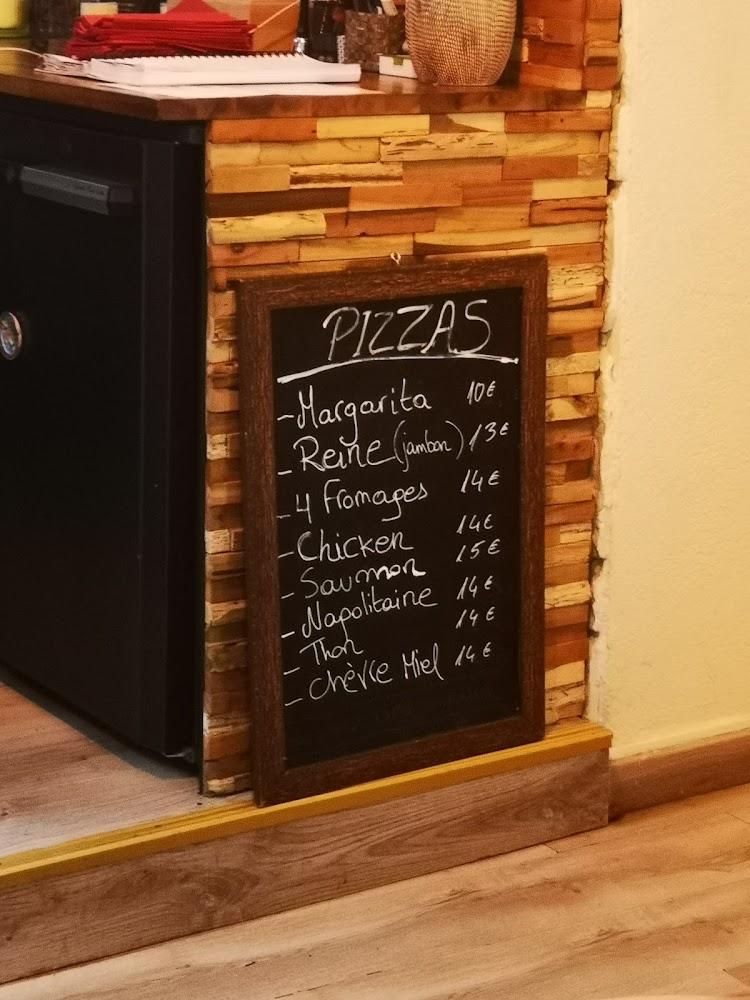 PIZZAS
- Margarita 10€
- Reine (jambon) 13€
- 4 Fromages 14€
- Chicken 14€
- Saumon 15€
- Napolitaine 14€
- Thon 14€
- Chèvre Miel 14€